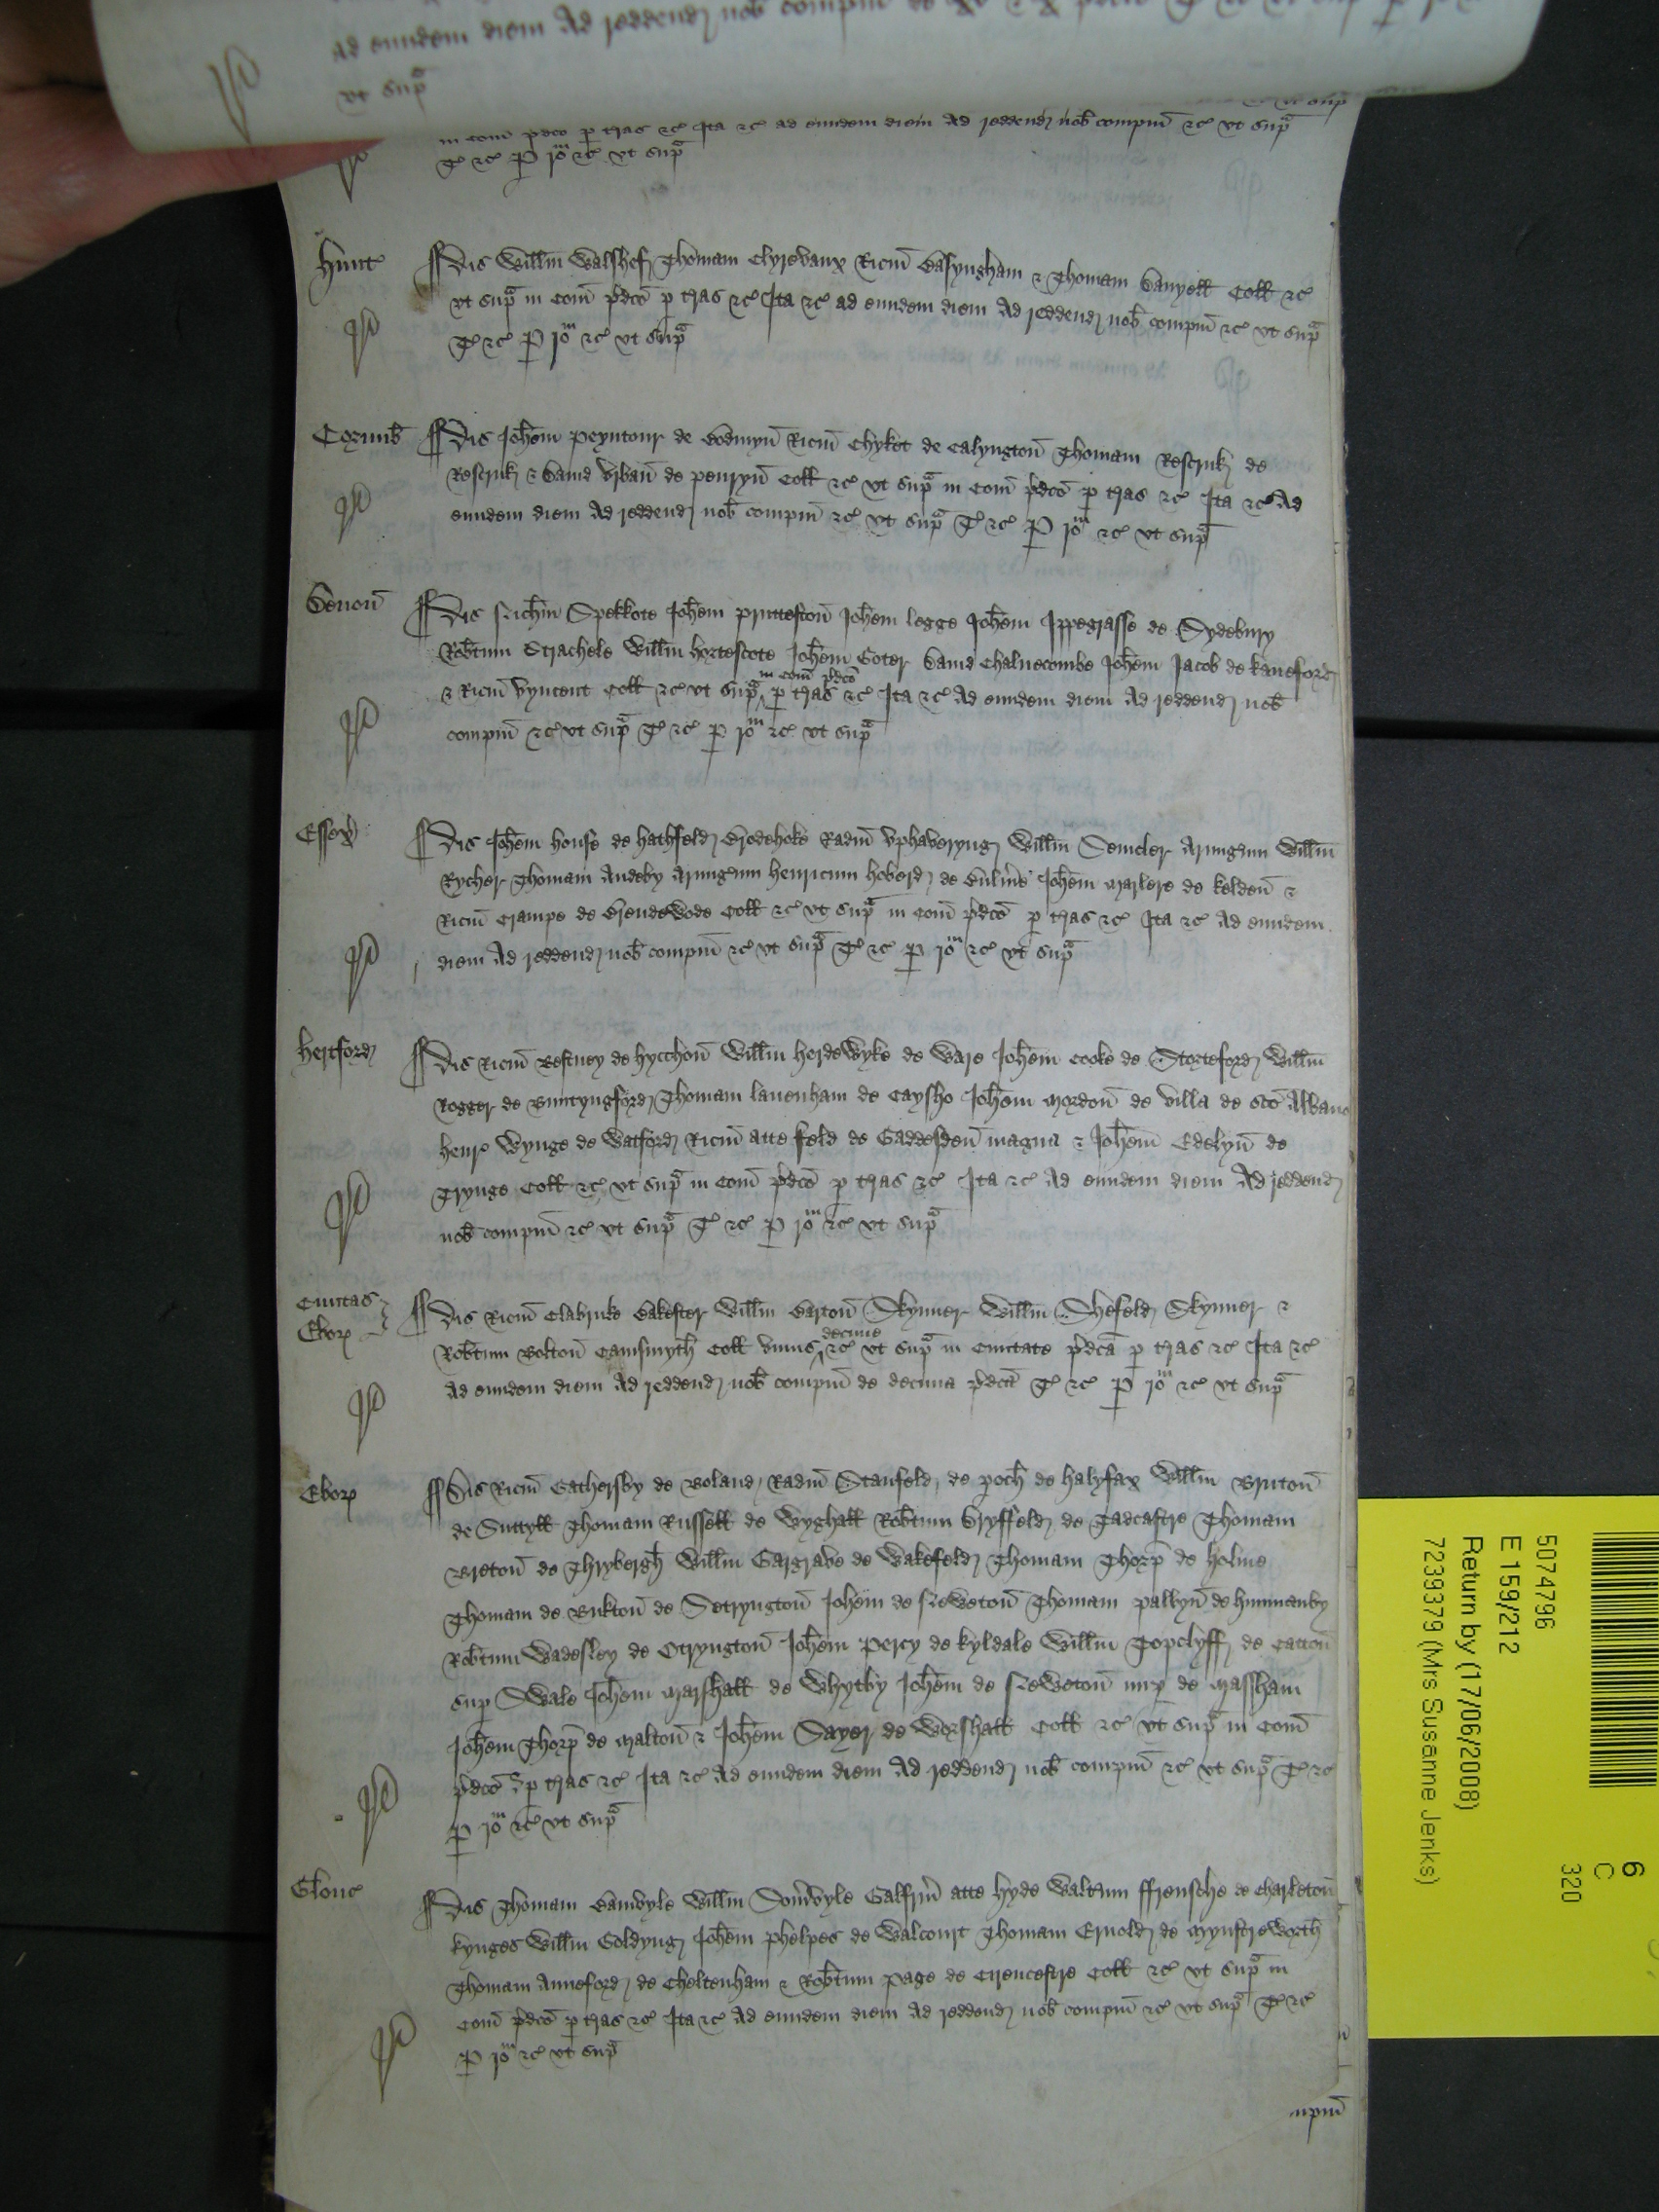 ad eundem diem Ad reddend nob compm de xv & x
vt sup̃a
in com̃ pdc̃o p tras &c Ita &c ad eundem diem Ad reddend nob compm &c vt sup̃a
T &c P Rom &c vt sup̃a
Hunt
Dis Willm Walshef Thomam Clyrevaux Ricm̃ Basyngham & Thomam Danyell Coll &c
vt sup̃a in Com̃ pdc̃o p tras &c Ita &c ad eundem diem Ad reddend nob compm &c vt sup̃a
T &c P Rom &c vt sup̃a
Cornub
Dis Johem Peyntour de Bodmyn̄ Ricm̃ Chyket de Calyngton̄ Thomam Rescruk de
Rescruk & David Urban̄ de Penryn̄ Coll &c vt sup̃a in Com̃ pdc̃o p tras &c Ita &c Ad
eundem diem Ad reddend nob compm &c vt sup̃a T &c P Rom &c vt sup̃a
Devon̄
Dis Nichm̃ Spekkote Johem Prutteston̄ Johem Legge Johem Ippegrasse de Sydebury
Robtum Strachele Willm Hortescote Johem Goter David Chalvecombe Johem Jacob de Kaneford
& Ricm̃ Vyncent Coll &c vt sup̃a in com̃ pdc̃o p tras &c Ita &c Ad eundem diem Ad reddend nob
compm &c vt sup̃a T &c P Rom &c vt sup̃a
Essex
Dis Johem House de Hathfeld Brodehoke Radm̃ Uphaveryng Willm Semcler Armigm̃ Willm
Rycher Thomam Andeby Armigm̃ Henricum Hoberd de Bulmer Johem Marlere de Kelden̄ &
Ricm̃ Crampe de Brendewode Coll &c vt sup̃a in Com̃ pdc̃o p tras &c Ita &c Ad eundem
diem Ad reddend nob compm &c vt sup̃a T &c P Rom &c vt sup̃a
Hertford
Dis Ricm̃ Restney de Hycchon̄ Willm Herdewyke de Ware Johem Cooke de Storteford Willm
Rogger de Buntyngford Thomam Lavenham de Caysho Johem Mordon̄ de villa de Sc̃o Albano
Henr Wynge de Watford Ricm̃ atte Feld de Gaddesden̄ magna & Johem Edelyn̄ de
Trynge Coll &c vt sup̃a in Com̃ pdc̃o p tras &c Ita &c Ad eundem diem Ad reddend
nob compm &c vt sup̃a T &c P Rom &c vt sup̃a
Civitas
Ebor
Dis Ricm̃ Clabruke Bakester Willm Barton̄ Skynner Willm Shefeld Skynner &
Robtum Bolton̄ Camsmyth Coll unius decime &c vt sup̃a in Civitate pdc̃a p tras &c Ita &c
Ad eundem diem Ad reddend nob compm de decima pdc̃a T &c P Rom &c vt sup̃a
Ebor
Dis Ricm̃ Cathersby de Boland Radm̃ Stanfeld de poch de Halyfax Willm Bruton̄
de Suttyll Thomam Russell de Wyghall Robtum Dryffeld de Tadcastre Thomam
Breton̄ de Thrybergh Willm Gargrave de Wakefeld Thomam Thorp de Holme
Thomam de Bukton̄ de Setryngton̄ Johem de Neweton̄ Thomam Pallyn̄ de Hunmanby
Robtum Wadesley de Otryngton̄ Johem Percy de Kyldale Willm Topclyff de Catton̄
sup Swale Johem Marshall de Whytby Johem de Neweton̄ iunr de Massham
Johem Thorp de Malton̄ & Johem Sayer de Worshall Coll &c vt sup̃a in Com̃
pdc̃o p tras &c Ita &c Ad eundem diem Ad reddend nob compm &c vt sup̃a T &c
P Rom &c vt sup̃a
Glouc
Dis Thomam Damvyle Willm Somvyle Galfrm̃ atte Hyde Waltum Ffrensche de Charleton̄
Kynges Willm Goldyng Johem Phelpes de Walcourt Thomam Ernold de Mynstreworth
Thomam Anneford de Cheltenham & Robtum Page de Cirencestre Coll &c vt sup̃a in
Com̃ pdc̃o p tras &c Ita &c Ad eundem diem Ad reddend nob compm &c vt sup̃a T &c
P Rom &c vt sup̃a
5074796
E 159/212
Return by (17/06/2008)
7239379 (Mrs Susanne Jenks)
6
C
320